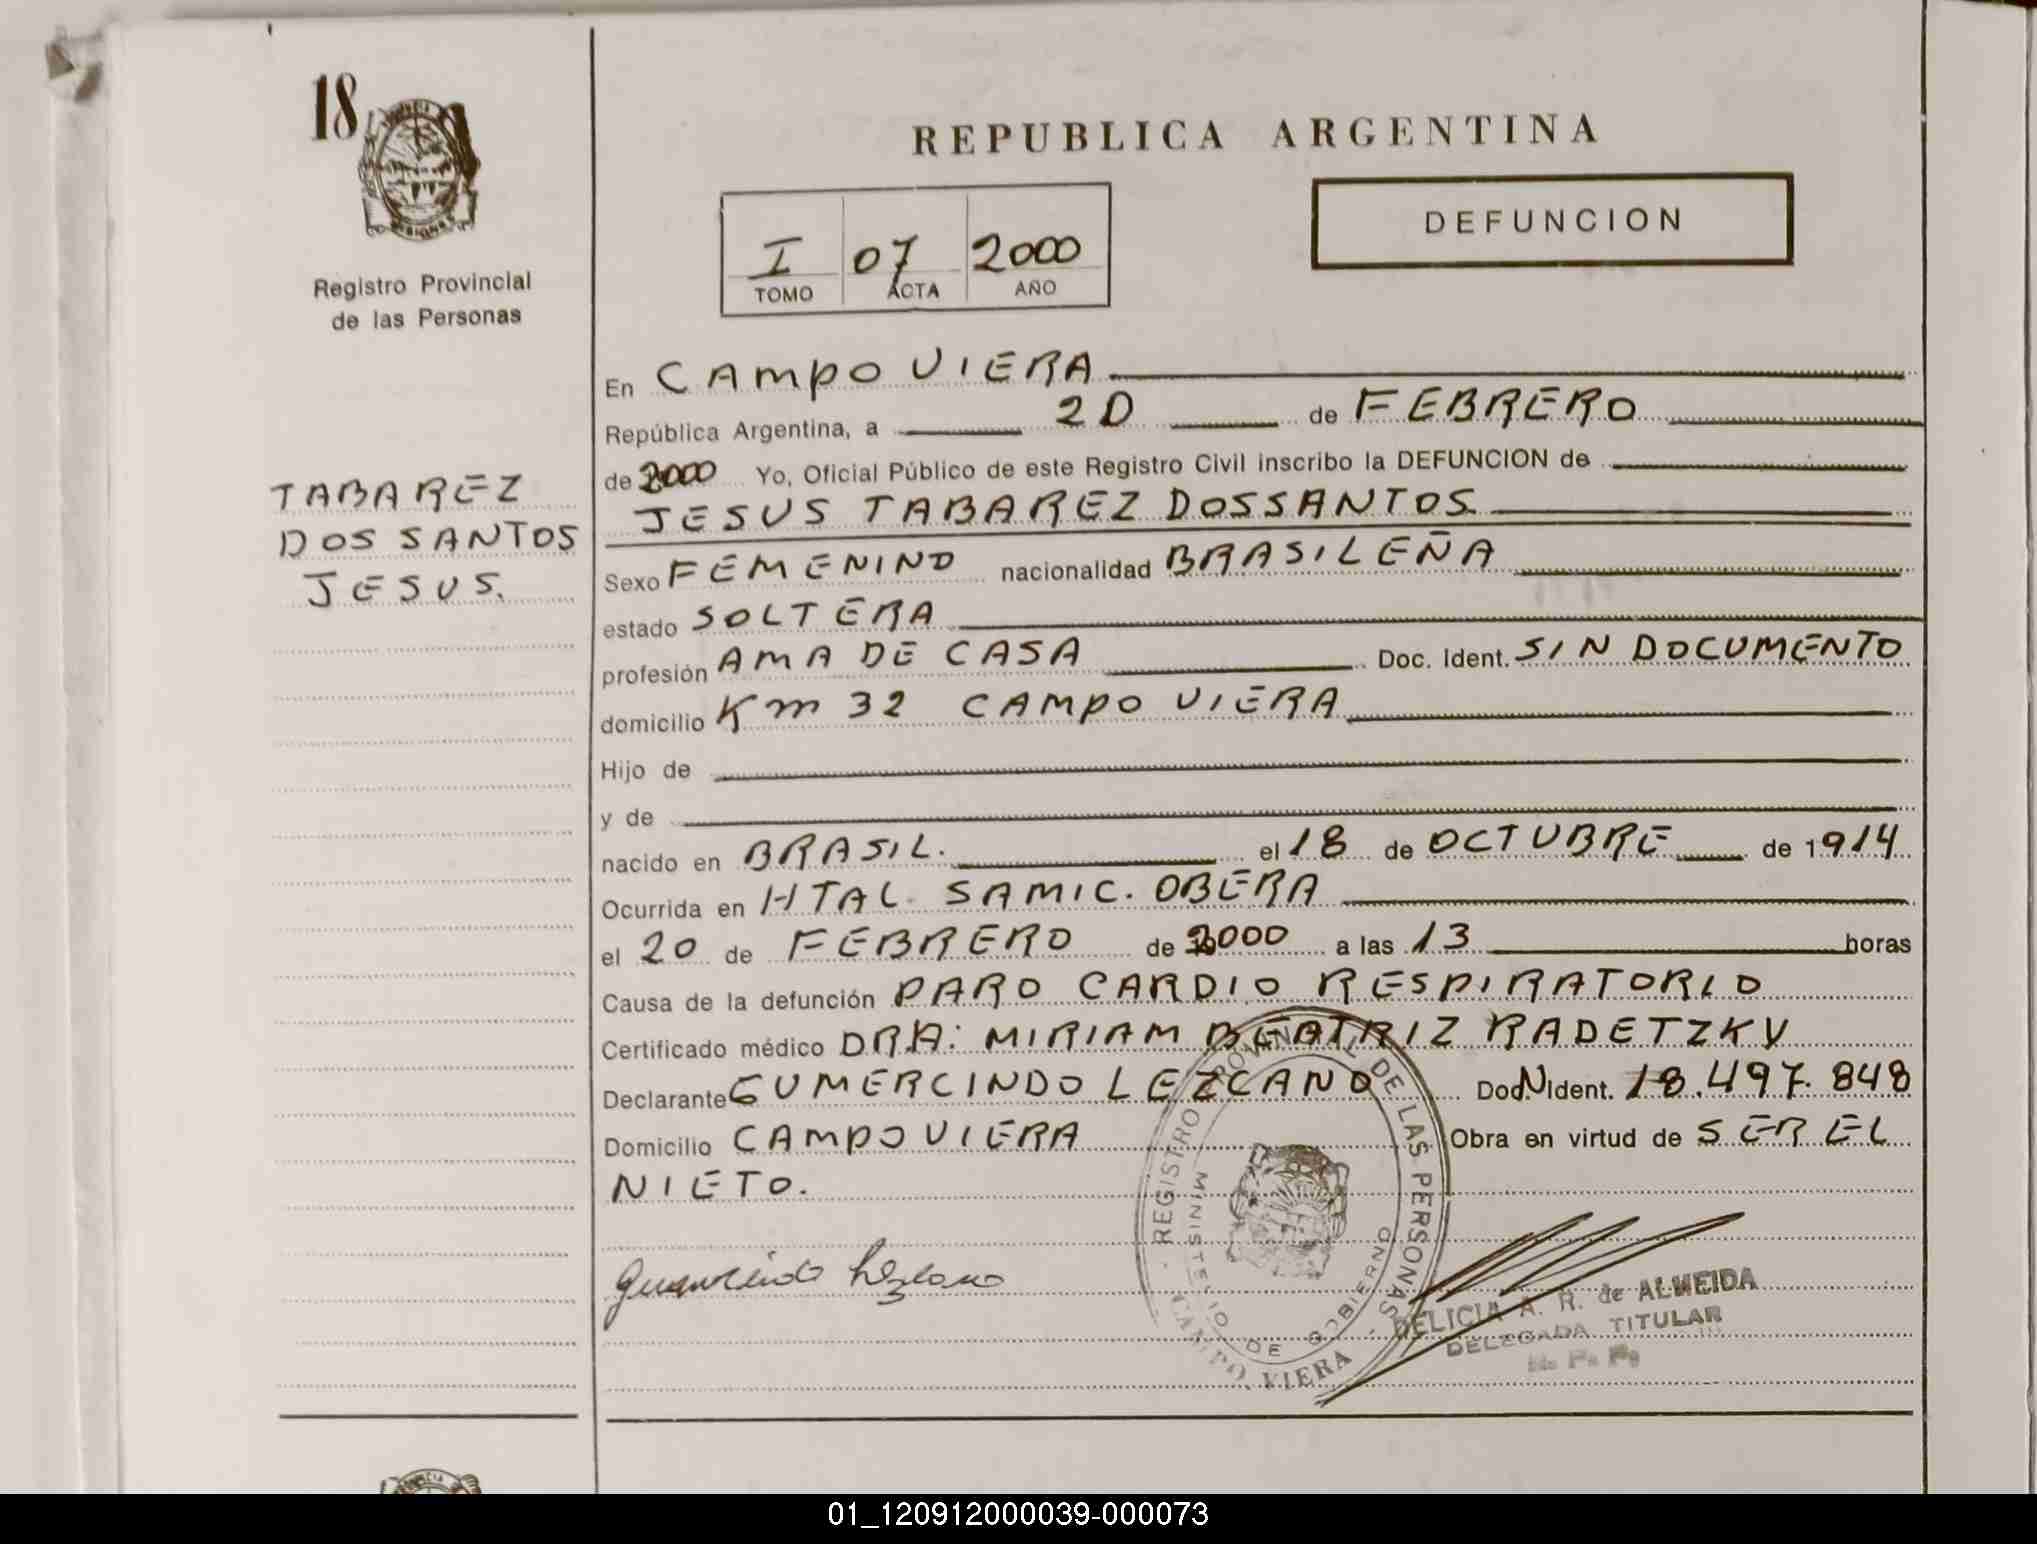 18
Registro Provincial
de las Personas
TABAREZ
DOS SANTOS
JESUS.
REPUBLICA ARGENTINA
I 07 2000
TOMO ACTA AÑO
DEFUNCION
En CAMPO VIERA
República Argentina, a 20 de FEBRERO
de 2000 Yo, Oficial Público de este Registro Civil inscribo la DEFUNCION de
JESUS TABAREZ DOSSANTOS
Sexo FEMENINO nacionalidad BRASILEÑA
estado SOLTERA
profesión AMA DE CASA Doc. Ident. SIN DOCUMENTO
domicilio Km 32 CAMPO VIERA
Hijo de
y de
nacido en BRASIL. el 18 de OCTUBRE de 1914
Ocurrida en HTAL. SAMIC. OBERA
el 20 de FEBRERO de 2000 a las 13 horas
Causa de la defunción PARO CARDIO RESPIRATORIO
Certificado médico DRA: MIRIAM BEATRIZ RADETZKY
Declarante GUMERCINDO LEZCANO Doc. N Ident. 18.497.848
Domicilio CAMPO VIERA Obra en virtud de SER EL
NIETO.
Gumercindo Lezcano
REGISTRO PROVINCIAL DE LAS PERSONAS
MINISTERIO DE GOBIERNO
CAMPO VIERA
DELICIA A. R. de ALMEIDA
DELEGADA TITULAR
01_120912000039-000073